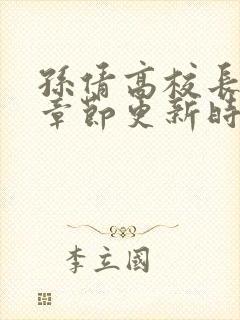 孫倩高校長
章節更新時
李立國